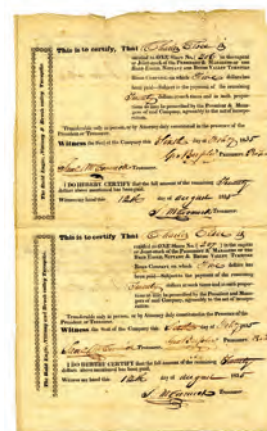 This is to certify, That Charles Stone is
entitled to ONE Share No. 206 in the capital
or Joint stock of the PRESIDENT & MANAGERS OF THE
BALD EAGLE, NITTANY AND BRUSH VALLEY TURNPIKE
ROAD COMPANY on which Five dollars has
been paid—Subject to his payment of the remaining
Twenty dollars at such times and in such propor-
tions as may be prescribed by the President & Mana-
gers of said Company, agreeably to the act of incorpo-
ration.
Transferable only in person, or by Attorney duly constituted in the presence of the
President or Treasurer.
Witness the Seal of the Company this day of July 1835
PRESIDENT.
TREASURER.
I DO HEREBY CERTIFY that the full amount of the remaining Twenty
dollars above mentioned has been paid.
Witness my hand this 12th day of August 1835
TREASURER.
The Bald Eagle, Nittany & Brush valley Turnpike.
This is to certify, That Charles Stone is
entitled to ONE Share No. 207 in the capital
or Joint stock of the PRESIDENT & MANAGERS OF THE
BALD EAGLE, NITTANY & BRUSH VALLEY TURNPIKE
ROAD COMPANY on which Five dollars has
been paid—Subject to his payment of the remaining
Twenty dollars at such times and in such propor-
tions as may be prescribed by the President & Mana-
gers of said Company, agreeably to the act of incorpo-
ration.
Transferable only in person, or by Attorney duly constituted in the presence of the
President or Treasurer.
Witness the Seal of the Company this day of July 1835
PRESIDENT.
TREASURER.
I DO HEREBY CERTIFY that the full amount of the remaining Twenty
dollars above mentioned has been paid.
Witness my hand this 12th day of August 1835
TREASURER.
The Bald Eagle, Nittany & Brush valley Turnpike.